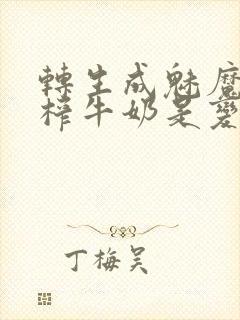 轉生成魅魔
榨牛奶是變
丁梅吴